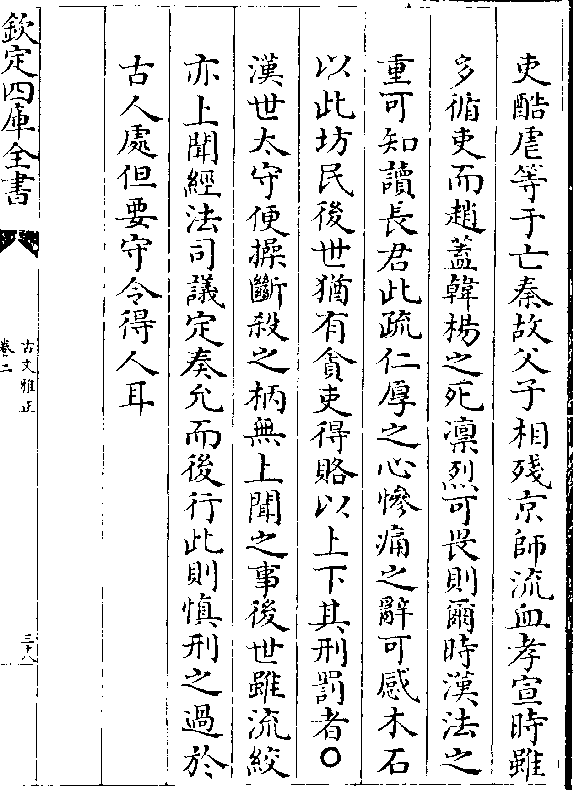 吏酷虐等于亡秦故父子相殘京師流血孝宣時雖
多循吏而趙蓋韓楊之死凛烈可畏則爾時漢法之
重可知讀長君此疏仁厚之心慘痛之辭可感木石
以此坊民後世猶有貪吏得賂以上下其刑罰者○
漢世太守便操斷殺之柄無上聞之事後世雖流絞
亦上聞經法司議定奏允而後行此則慎刑之過於
古人處但要守令得人耳
欽定四庫全書
古文雅正
卷二
三十八